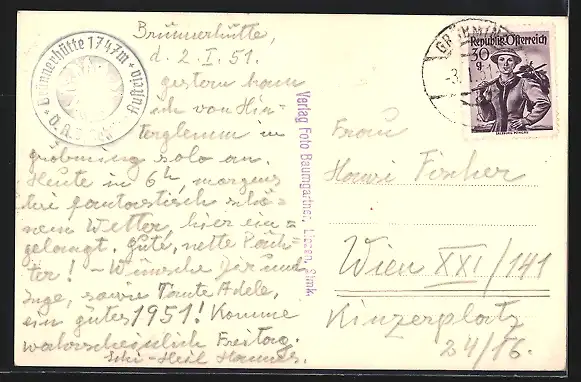 Brünnerhütte 1747m
Ö.A.V.
Brünnerhütte,
d. 2. I. 51.
gestern kam
ich von Hin=
terglemm in
Gröbming solo an.
Heute in 6h, morgens
bei fantastisch schö=
nem Wetter, hier ein=
gelangt. Gute, nette Päch=
ter! - Wünsche Dir und
Inge, sowie Tante Adele,
ein gutes 1951! Komme
wahrscheinlich Freitag.
Schi-Heil Hannes.
Verlag Foto Baumgartner, Liezen, Stmk.
GRÖBMING
51
Republik Österreich
30
g
Frau
Hansi Fischer
Wien XXI/141
Kinzerplatz
24/16.